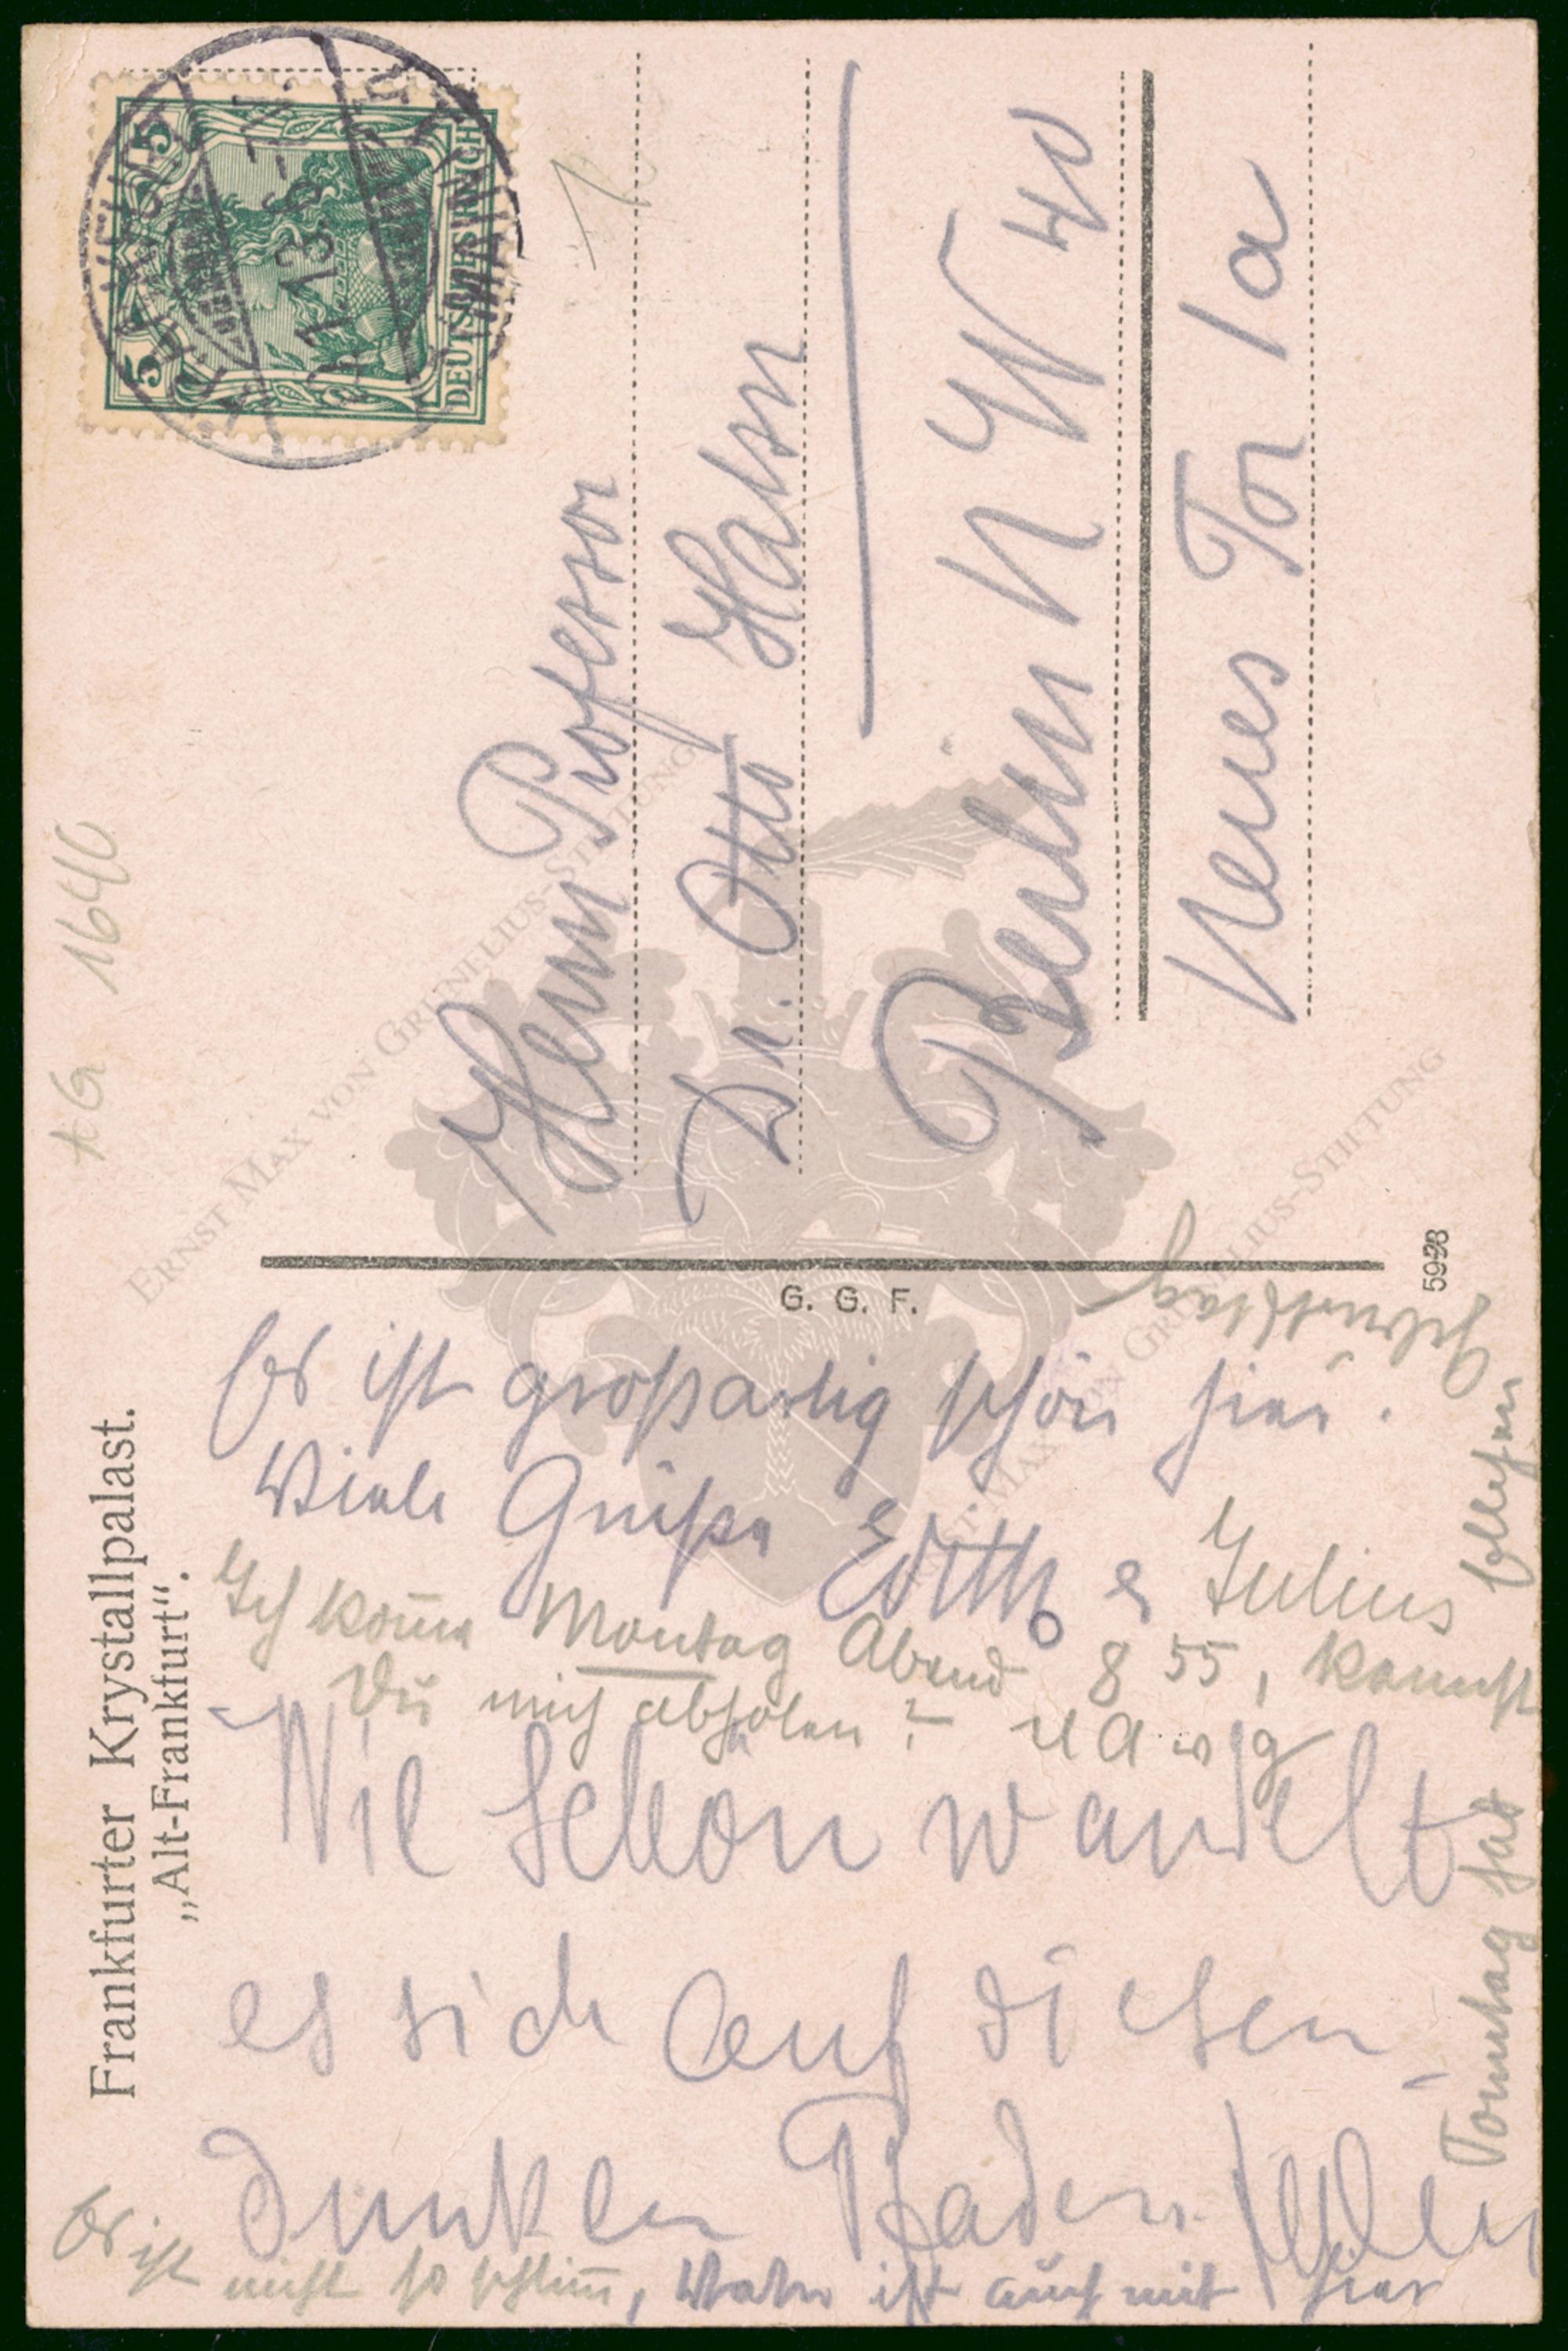 Frankfurter Krystallpalast.
„Alt-Frankfurt“.
Es ist großartig schön hier.
Viele Grüße Edith & Julius
Ich komme Montag Abend 8 55, kannst
Du mich abholen?
Wie schön wandelt
es sich auf diesen
dunklen Pfaden
Es ist nicht so schlimm, ist auch mit hier
Sonntag hat
Geburtstag
G. G. F.
5998
KG 1640
Herrn Professor
Dr. Otto
Berlin NW 40
Neues Tor 1a
5 5
DEUTSCHES REICH
FRANKFURT
MAIN
1.13
ERNST MAX VON GRUNELIUS-STIFTUNG
ERNST MAX VON GRUNELIUS-STIFTUNG